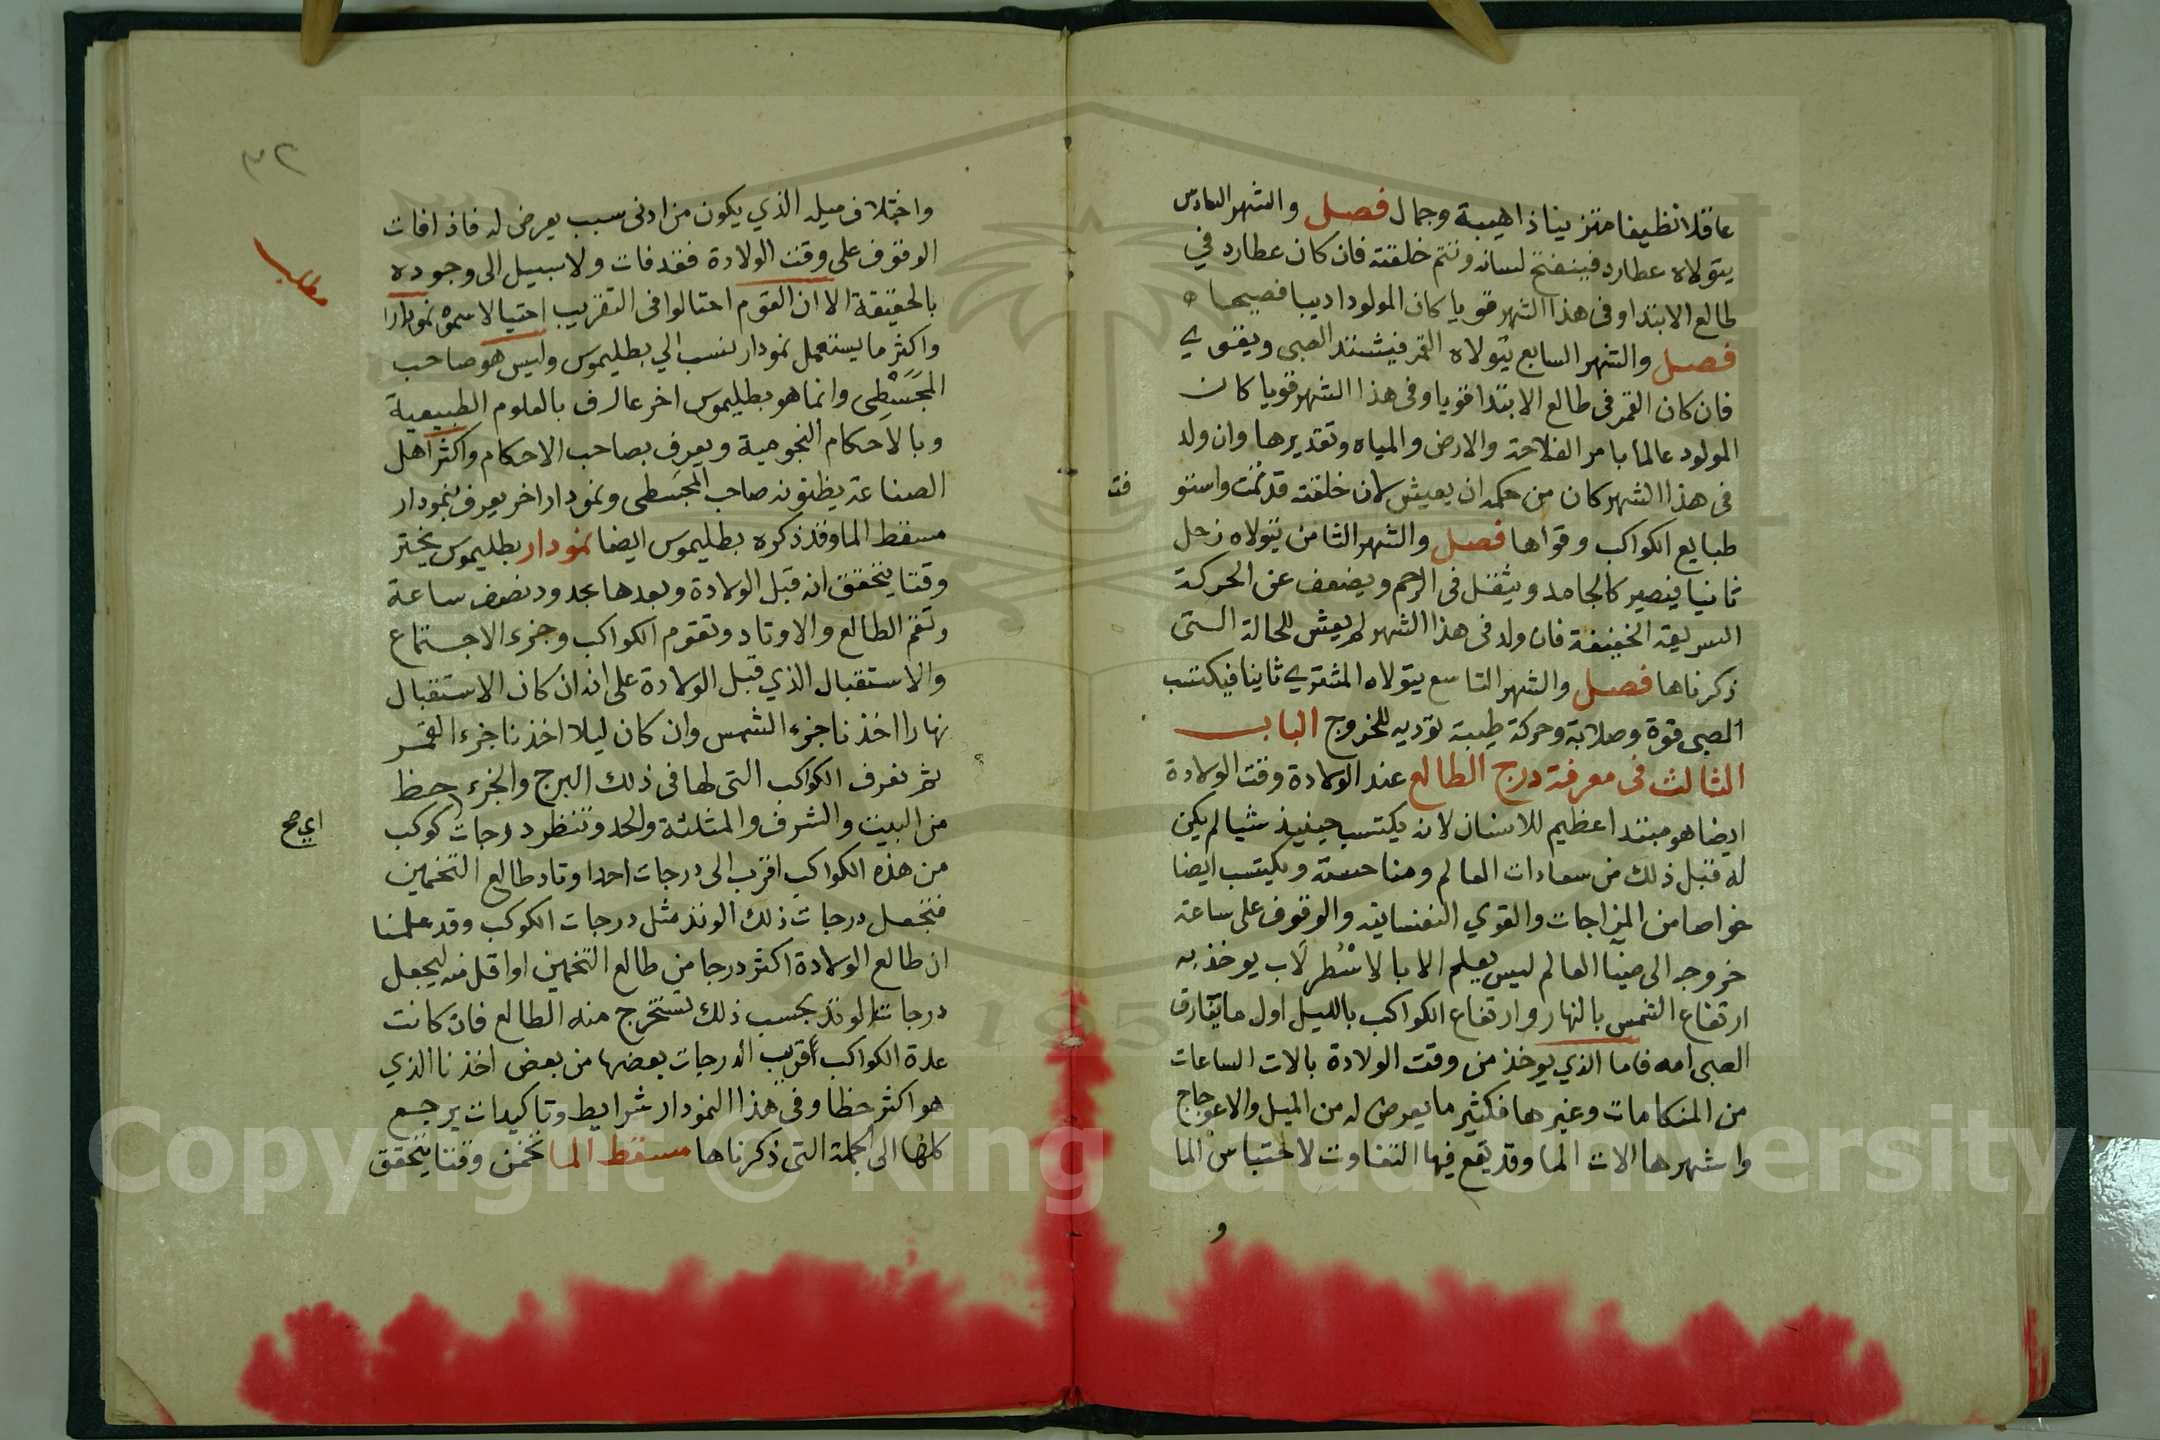 عاقلا نظيفا متزينا ذا هيبة وجمال فصل والشهر السادس
يتولاه عطارد فينفتح لسانه وتتم خلقته فان كان عطارد في
طالع الابتدا وفى هذا الشهر قويا كان المولود اديبا فصيحا
فصل والشهر السابع يتولاه القمر فيشتد الصبى ويقوي
فان كان القمر فى طالع الابتدا قويا وفى هذا الشهر قويا كان
المولود عالما بامر الفلاحة والارض والمياه وتقديرها وان ولد
فى هذا الشهر كان من حكمه ان يعيش لان خلقته قد تمت واستو
فت
طبايع الكواكب وقواها فصل والشهر الثامن يتولاه زحل
ثانيا فيصير كالجامد ويثقل فى الرحم ويضعف عن الحركة
السريعة الخفيفة فان ولد فى هذا الشهر لم يعش للحالة التى
ذكرناها فصل والشهر التاسع يتولاه المشتري ثانيا فيكتسب
الصبى قوة وصلابة وحركة طيبة توديه للخروج الباب
الثالث فى معرفة درج الطالع عند الولادة وقت الولادة
ايضا هو مبتدا عظيم للانسان لانه يكتسب حينيذ شيا لم يكن
له قبل ذلك من سعادات العالم ومناحسه ويكتسب ايضا
خواصا من المزاجات والقوي النفسانية والوقوف على ساعة
خروجه الى العالم ليس يعلم الا بالاسْطرلَاب يوخذ به
ارتفاع الشمس بالنهار وارتفاع الكواكب بالليل اول ما يفارق
الصبى امه فاما الذي يوخذ من وقت الولادة بالات الساعات
من المنكامات وغيرها فكثير ما يعرض له من الميل والاعوجاج
واشهرها الات الما وقد يقع فيها التفاوت لاحتباس الما
و
٣٢
واختلاف ميله الذي يكون من ادنى سبب يعرض له فاذا فات
الوقوف على وقت الولادة فقد فات ولا سبيل الى وجوده
مطلب
بالحقيقة الا ان القوم احتالوا فى التقريب احتيالا سموه نمودارا
واكثر ما يستعمل نمودار ينسب الي بطليموس وليس هو صاحب
المجَسْطِى وانما هو بطليموس اخر عالرف بالعلوم الطبيعية
وبالاحكام النجومية ويعرف بصاحب الاحكام واكثر اهل
الصناعة يظنونه صاحب المجسطى ونمودار اخر يعرف بنمودار
مسقط الما وقد ذكره بطليموس ايضا نمودار بطليموس
وقتا يتحقق انه قبل الولادة وبعدها بحدود نصف ساعة
وتقم الطالع والاوتاد وتقوم الكواكب وجزء الاجتماع
والاستقبال الذي قبل الولادة على انه ان كان الاستقبال
نهارا اخذنا جزء الشمس وان كان ليلا اخذنا جزء القمر
ثم نعرف الكواكب التى لها فى ذلك البرج والجزء حظ
من البيت والشرف والمثلثة والحد وتنظر درجات كوكب
اي صح
من هذه الكواكب اقرب الى درجات احد اوتاد طالع التخمين
فتجعل درجات ذلك الوتد مثل درجات الكوكب وقد علمنا
ان طالع الولادة اكثر درجا من طالع التخمين او اقل منه ليجعل
درجات الوتد بحسب ذلك نستخرج منه الطالع فان كانت
عدة الكواكب اقرب الدرجات بعضها من بعض اخذنا الذي
هو اكثر حظا وفى هذا النمودار شرايط وتاكيدات يرجع
كلها الى الجملة التى ذكرناها مسقط الما تخمن وقتا يتحقق
Copyright © King Saud University
195